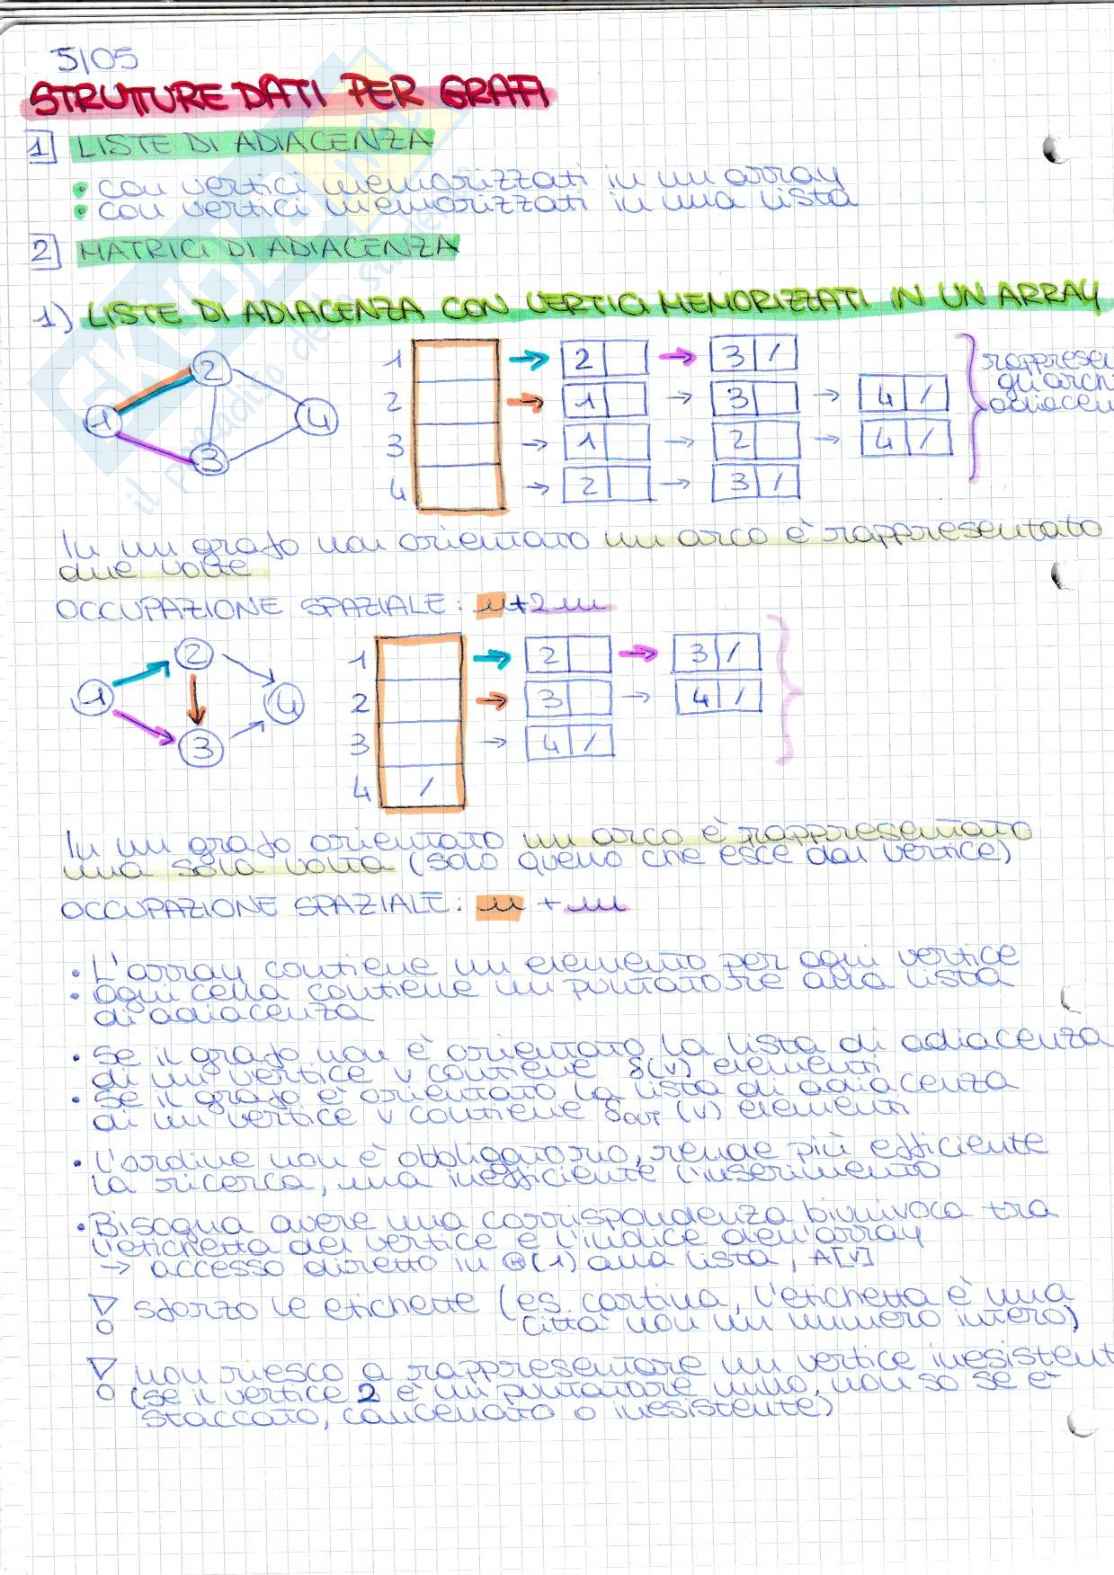 5/05
STRUTTURE DATI PER GRAFI
1 LISTE DI ADIACENZA
• con vertici memorizzati in un array
• con vertici memorizzati in una lista
2 MATRICI DI ADIACENZA
1) LISTE DI ADIACENZA CON VERTICI MEMORIZZATI IN UN ARRAY
1 2 3 4
1 → 2 → 3 /
2 → 1 → 3 → 4 /
3 → 1 → 2 → 4 /
4 → 2 → 3 /
In un grafo non orientato un arco è rappresentato
due volte
OCCUPAZIONE SPAZIALE: n+2m
1 2 3 4
1 → 2 → 3 /
2 → 3 → 4 /
3 → 4 /
4 /
In un grafo orientato un arco è rappresentato
una sola volta (solo quello che esce dal vertice)
OCCUPAZIONE SPAZIALE: n + m
• L'array contiene un elemento per ogni vertice
• Ogni cella contiene un puntatore alla lista
di adiacenza
• Se il grafo non è orientato la lista di adiacenza
di un vertice v contiene δ(v) elementi
• Se il grafo è orientato la lista di adiacenza
di un vertice v contiene δout (v) elementi
• L'ordine non è obbligatorio, rende più efficiente
la ricerca, ma inefficiente l'inserimento
• Bisogna avere una corrispondenza biunivoca tra
l'etichetta del vertice e l'indice dell'array
→ accesso diretto in Θ(1) alla lista, A[v]
sforzo le etichette (es. cartina, l'etichetta è una
città non un numero intero)
non riesco a rappresentare un vertice inesistent
(se il vertice 2 è un puntatore nullo, non so se è
staccato, cancellato o inesistente)